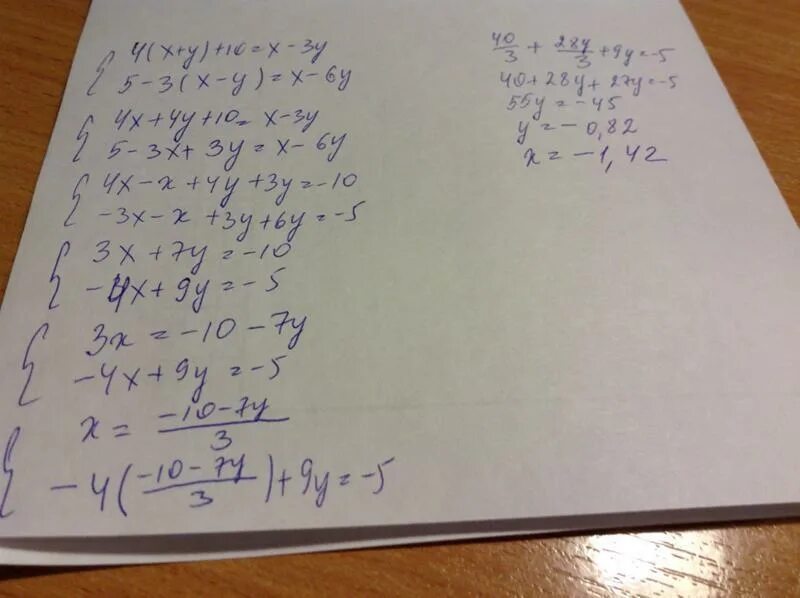 4(x+y)+10=x-3y
5-3(x-y)=x-6y
4x+4y+10=x-3y
5-3x+3y=x-6y
4x-x+4y+3y=-10
-3x-x+3y+6y=-5
3x+7y=-10
-4x+9y=-5
3x=-10-7y
-4x+9y=-5
x=\frac{-10-7y}{3}
-4(\frac{-10-7y}{3})+9y=-5
\frac{40}{3}+\frac{28y}{3}+9y=-5
40+28y+27y=-5
55y=-45
y=-0,82
x=-1,42